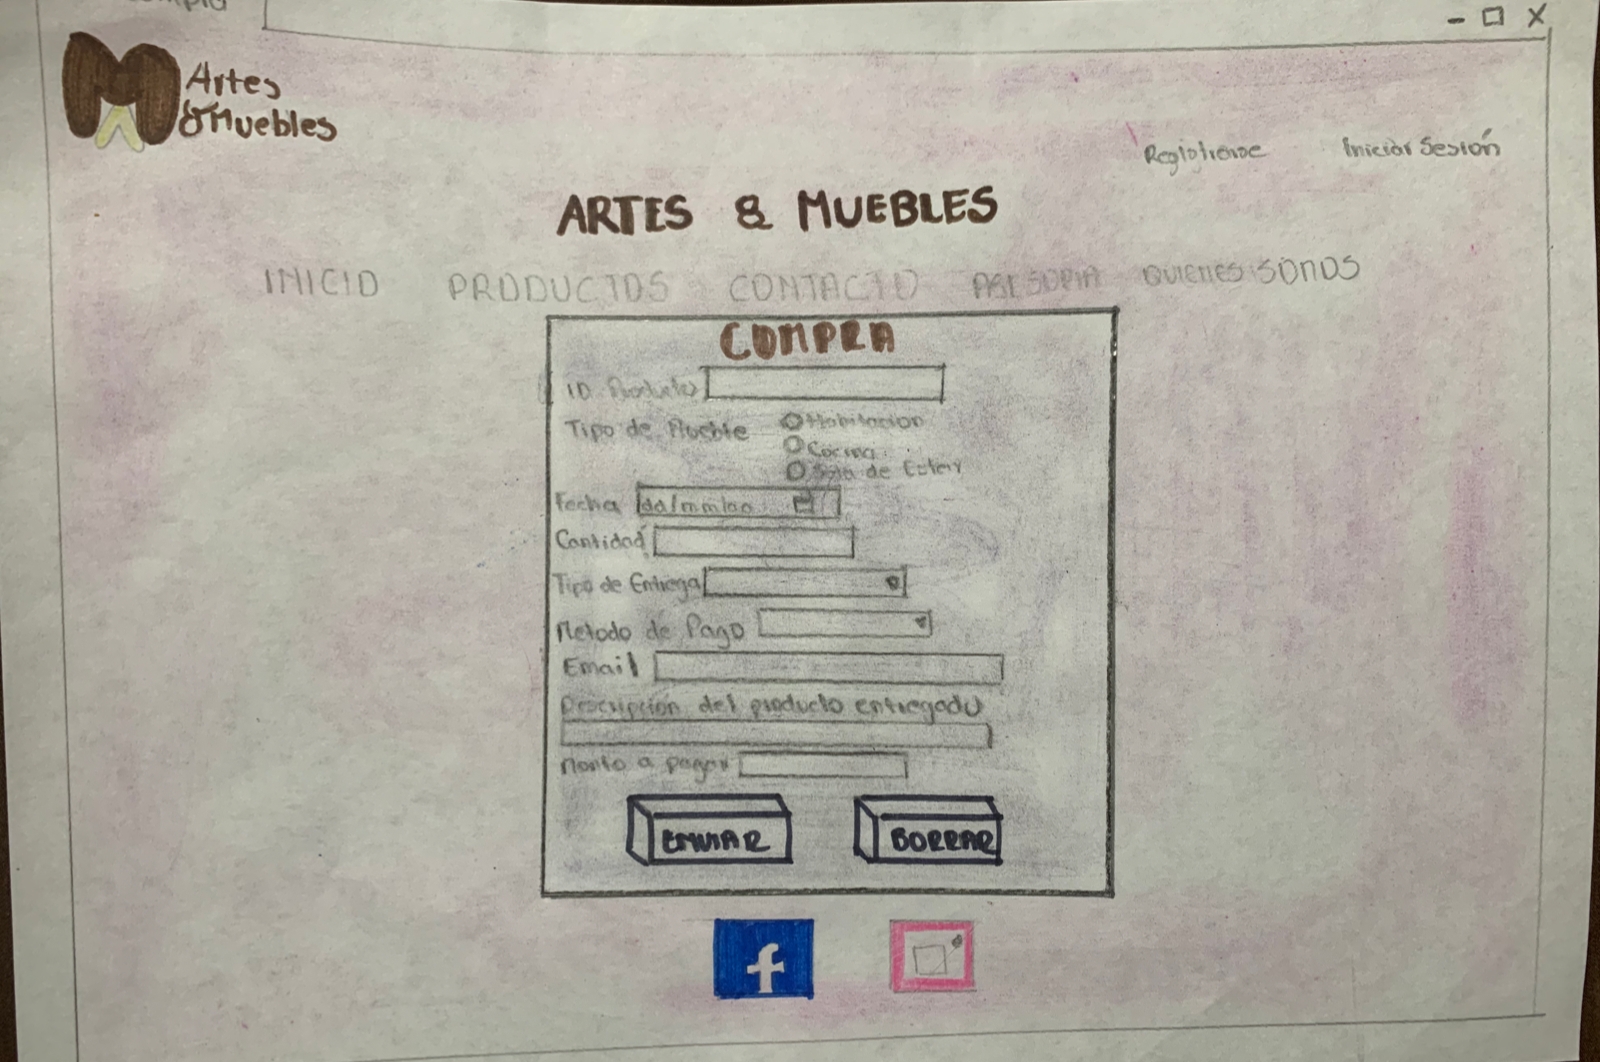 Artes
& Muebles
Registrerse
Iniciar Sesión
ARTES & MUEBLES
INICIO PRODUCTOS CONTACTO ASESORIA QUIENES SOMOS
COMPRA
ID Producto
Tipo de Mueble
Habitacion
Cocina
Sala de Estar
Fecha dd/mm/aa
Cantidad
Tipo de Entrega
Metodo de Pago
Email
Descripción del producto entregado
Monto a pagar
ENVIAR BORRAR
f